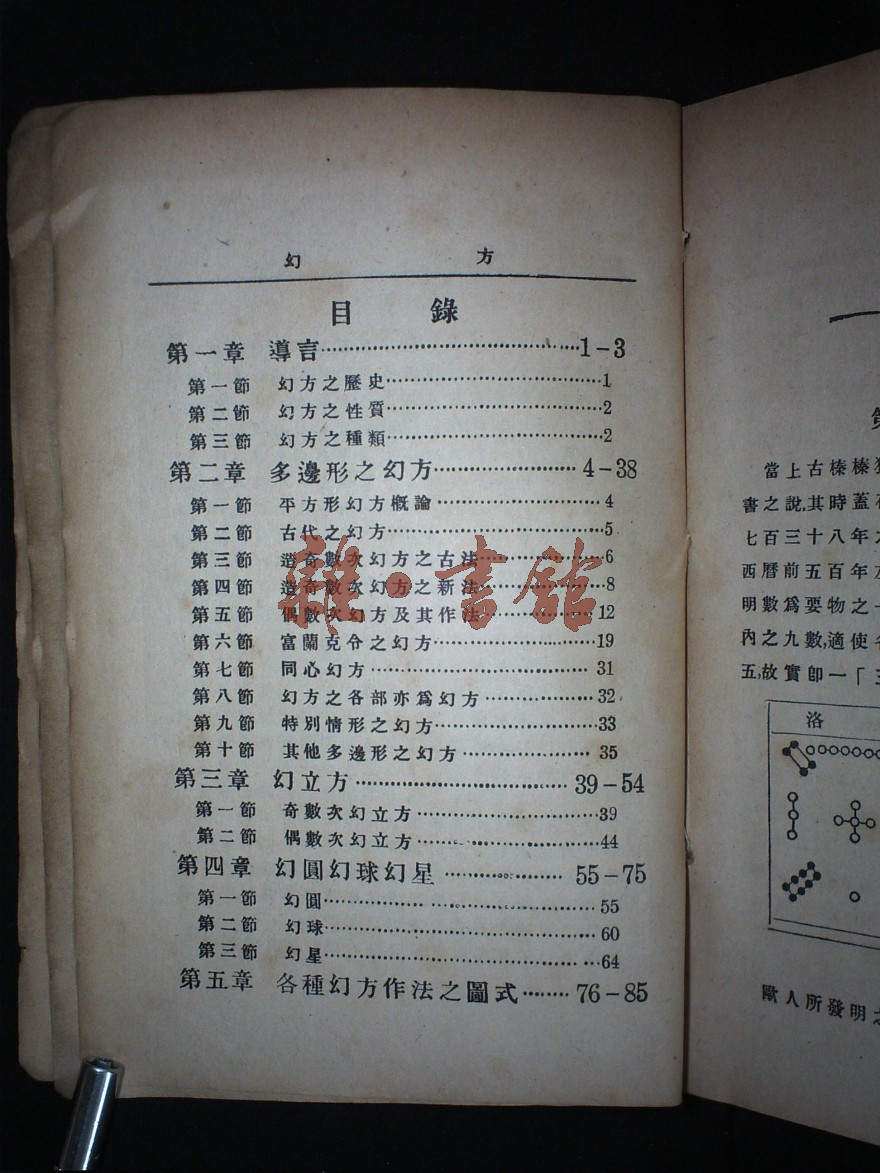 幻 方
目 錄
第一章 導言………1-3
第一節 幻方之歷史………1
第二節 幻方之性質………2
第三節 幻方之種類………2
第二章 多邊形之幻方………4-38
第一節 平方形幻方概論………4
第二節 古代之幻方………5
第三節 造奇數次幻方之古法………6
第四節 造奇數次幻方之新法………8
第五節 偶數次幻方及其作法………12
第六節 富蘭克令之幻方………19
第七節 同心幻方………31
第八節 幻方之各部亦爲幻方………32
第九節 特別情形之幻方………33
第十節 其他多邊形之幻方………35
第三章 幻立方………39-54
第一節 奇數次幻立方………39
第二節 偶數次幻立方………44
第四章 幻圓幻球幻星………55-75
第一節 幻圓………55
第二節 幻球………60
第三節 幻星………64
第五章 各種幻方作法之圖式………76-85
雜·書館
當上古榛榛
書之說,其時蓋
七百三十八年
西曆前五百年
明數爲要物之
內之九數,適使
五,故實卽一「三
洛
歐人所發明之